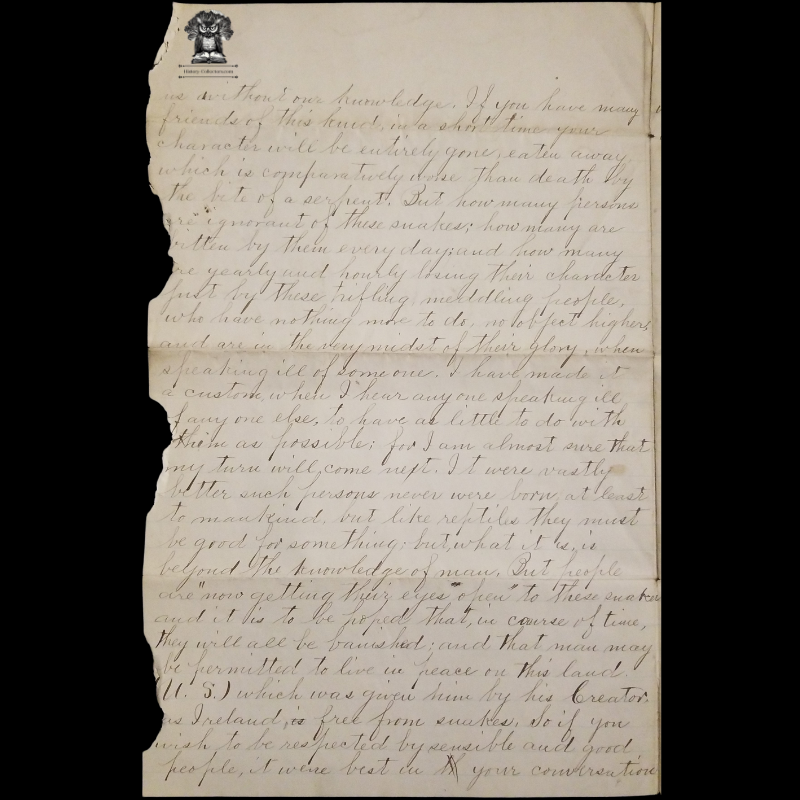 us without our knowledge. If you have many
friends of this kind, in a short time your
character will be entirely gone, eaten away
which is comparatively worse than death by
the bite of a serpent. But how many persons
are ignorant of these snakes; how many are
bitten by them every day; and how many
are yearly and hourly losing their character
just by these trifling, meddling people,
who have nothing more to do, no object higher,
and are in the very midst of their glory, when
speaking ill of some one. I have made it
a custom, when I hear any one speaking ill
of any one else, to have as little to do with
them as possible; for I am almost sure that
my turn will come next. It were vastly
better such persons never were born, at least
to mankind, but like reptiles they must
be good for something; but, what it is, is
beyond the knowledge of man. But people
are "now getting their eyes "open" to these snakes
and it is to be hoped, that, in course of time,
they will all be banished; and that man may
be permitted to live in peace on this land.
(U. S.) which was given him by his Creator.
as Ireland, is free from snakes, So if you
wish to be respected by sensible and good
people, it were best in your conversation